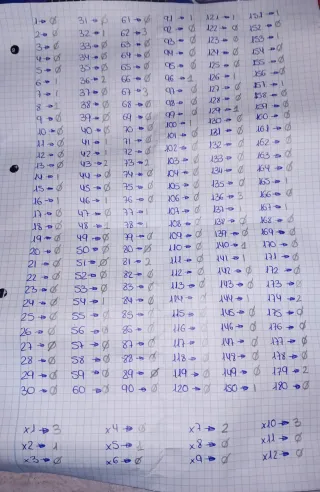 1→Ø
2→Ø
3→Ø
4→Ø
5→Ø
6→
7→1
8→1
9→Ø
10→Ø
11→Ø
12→Ø
13→Ø
14→1
15→Ø
16→1
17→Ø
18→Ø
19→Ø
20→Ø
21→Ø
22→Ø
23→Ø
24→Ø
25→Ø
26→Ø
27→Ø
28→Ø
29→Ø
30→Ø
31→Ø
32→1
33→Ø
34→Ø
35→Ø
36→2
37→Ø
38→Ø
39→Ø
40→Ø
41→1
42→1
43→2
44→Ø
45→Ø
46→Ø
47→Ø
48→1
49→Ø
50→Ø
51→Ø
52→Ø
53→Ø
54→1
55→Ø
56→Ø
57→Ø
58→Ø
59→Ø
60→Ø
61→Ø
62→3
63→Ø
64→Ø
65→Ø
66→Ø
67→3
68→Ø
69→Ø
70→Ø
71→Ø
72→Ø
73→2
74→Ø
75→Ø
76→Ø
77→1
78→1
79→Ø
80→Ø
81→2
82→Ø
83→Ø
84→Ø
85→
86→Ø
87→Ø
88→Ø
89→Ø
90→Ø
91→1
92→Ø
93→Ø
94→Ø
95→Ø
96→1
97→Ø
98→Ø
99→Ø
100→1
101→Ø
102→
103→Ø
104→Ø
105→Ø
106→Ø
107→Ø
108→Ø
109→Ø
110→Ø
111→Ø
112→Ø
113→Ø
114→
115→
116→
117→
118→Ø
119→Ø
120→Ø
121→1
122→Ø
123→Ø
124→Ø
125→Ø
126→1
127→Ø
128→
129→1
130→Ø
131→Ø
132→Ø
133→Ø
134→Ø
135→Ø
136→3
137→1
138→Ø
139→Ø
140→1
141→1
142→Ø
143→Ø
144→1
145→Ø
146→Ø
147→Ø
148→Ø
149→Ø
150→1
151→1
152→Ø
153→Ø
154→Ø
155→Ø
156→Ø
157→Ø
158→Ø
159→Ø
160→Ø
161→Ø
162→Ø
163→Ø
164→Ø
165→1
166→Ø
167→1
168→Ø
169→Ø
170→Ø
171→Ø
172→Ø
173→
174→2
175→Ø
176→Ø
177→Ø
178→Ø
179→2
180→Ø
x1→3
x2→1
x3→Ø
x4→Ø
x5→1
x6→Ø
x7→2
x8→Ø
x9→Ø
x10→3
x11→Ø
x12→Ø